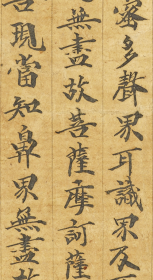 蜜多聲界耳識界及
無盡故菩薩摩訶薩
善現當知鼻界無盡故